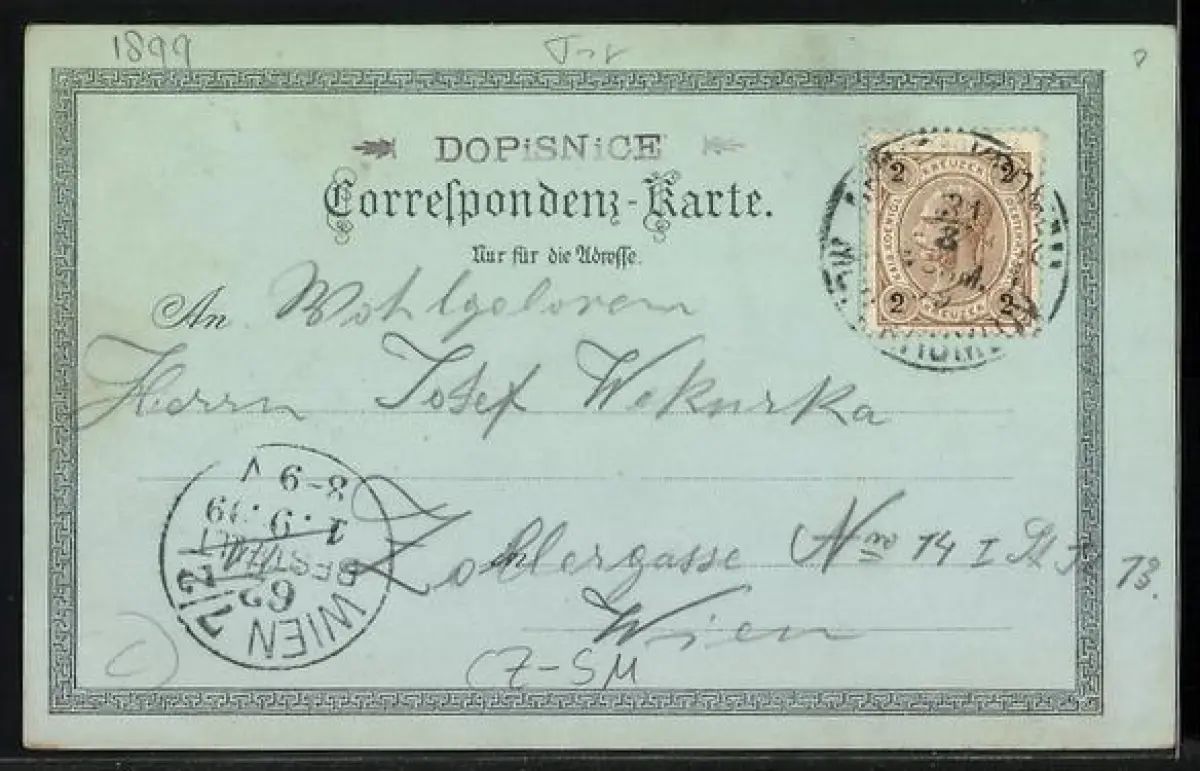 1899
DOPiSNiCE
Correspondenz-Karte.
Nur für die Adresse.
An Wohlgeloren
Herrn Josef Wekurka
Zollergasse Nro 14 I St T 13.
in Wien
(Z-SM
2 KREUZER 2
2 KREUZER 2
31
8
WIEN 7/2
62
BESTELLT
1.9.99
8-9 V